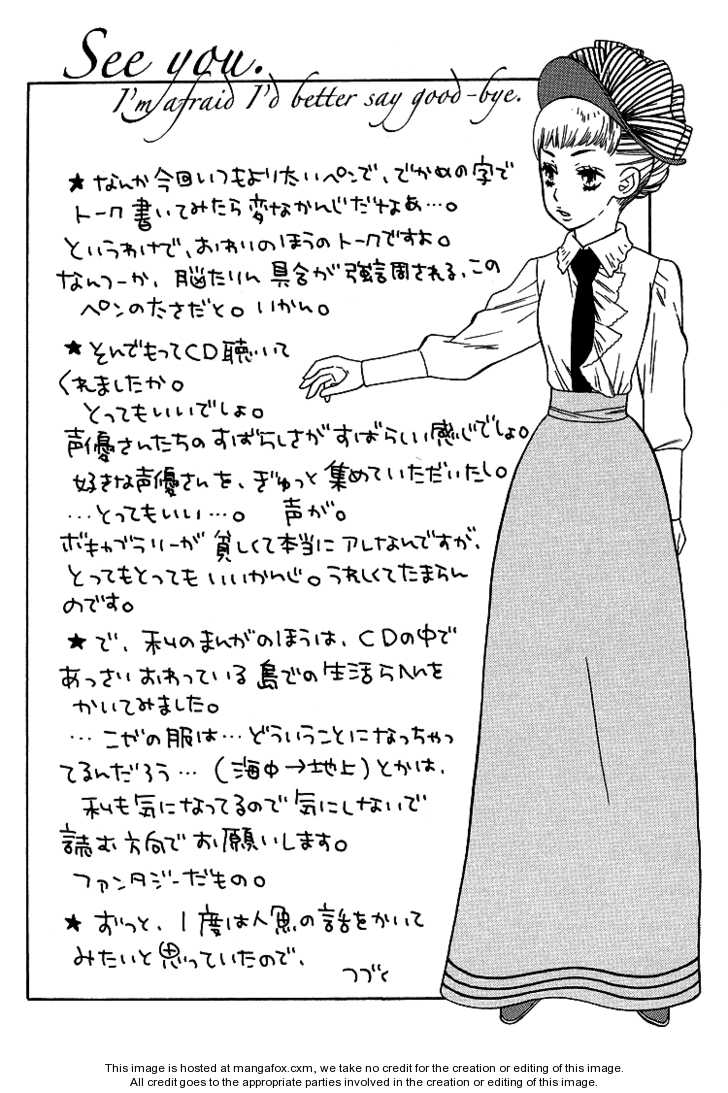 See you.
I'm afraid I'd better say good-bye.
★なんか今回いつもより太いペンで、でかめの字で
トーク書いてみたら変なかんじだなぁ…。
というわけで、おわりのほうのトークですよ。
なんつーか、脳たりん具合が強調される、この
ペンの太さだと。いかん。
★そんでもってCD聴いて
くれましたか。
とってもいいでしょ。
声優さんたちのすばらしさがすばらしい感じでしょ。
好きな声優さんを、ぎゅっと集めていただいたし。
…とってもいい…。 声が。
ボキャブラリーが貧しくて本当にアレなんですが、
とってもとってもいいかんじ。うれしくてたまらん
のです。
★で、私のまんがのほうは、CDの中で
あっさりおわっている島での生活らへんを
かいてみました。
…こゼの服は…どういうことになっちゃっ
てるんだろう…(海中→地上)とかは、
私も気になってるので気にしないで
読む方向でお願いします。
ファンタジーだもの。
★ずっと、1度は人魚の話をかいて
みたいと思っていたので、
つづく
This image is hosted at mangafox.cxm, we take no credit for the creation or editing of this image.
All credit goes to the appropriate parties involved in the creation or editing of this image.